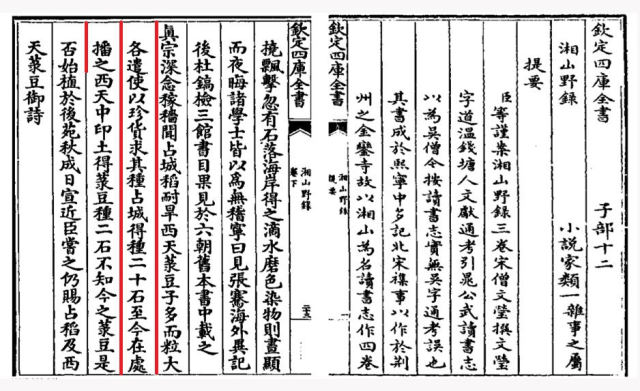 欽定四庫全書 子部十二
湘山野錄 小説家類一雜事之屬
提要
臣等謹案湘山野錄三卷宋僧文瑩撰文瑩
字道温錢塘人文獻通考引晁公武讀書志
以為吳僧今按讀書志實無吳字通考誤也
其書成於熙寧中多記北宋襍事以作於荆
州之金鑾寺故以湘山為名讀書志作四卷
欽定四庫全書
湘山野錄
提要
一
欽定四庫全書
湘山野錄
卷下
二十五
掠飄擊忽有石落海岸得之滴水磨色染物則晝顯
而夜晦諸學士皆以為無稽寧曰見張騫海外異記
後杜鎬檢三館書目果見於六朝舊本書中載之
真宗深念稼穡聞占城稻耐旱西天菉豆子多而粒大
各遣使以珍貨求其種占城得種二十石至今在處
播之西天中印土得菉豆種二石不知今之菉豆是
否始植於後苑秋成日宣近臣嘗之仍賜占稻及西
天菉豆御詩